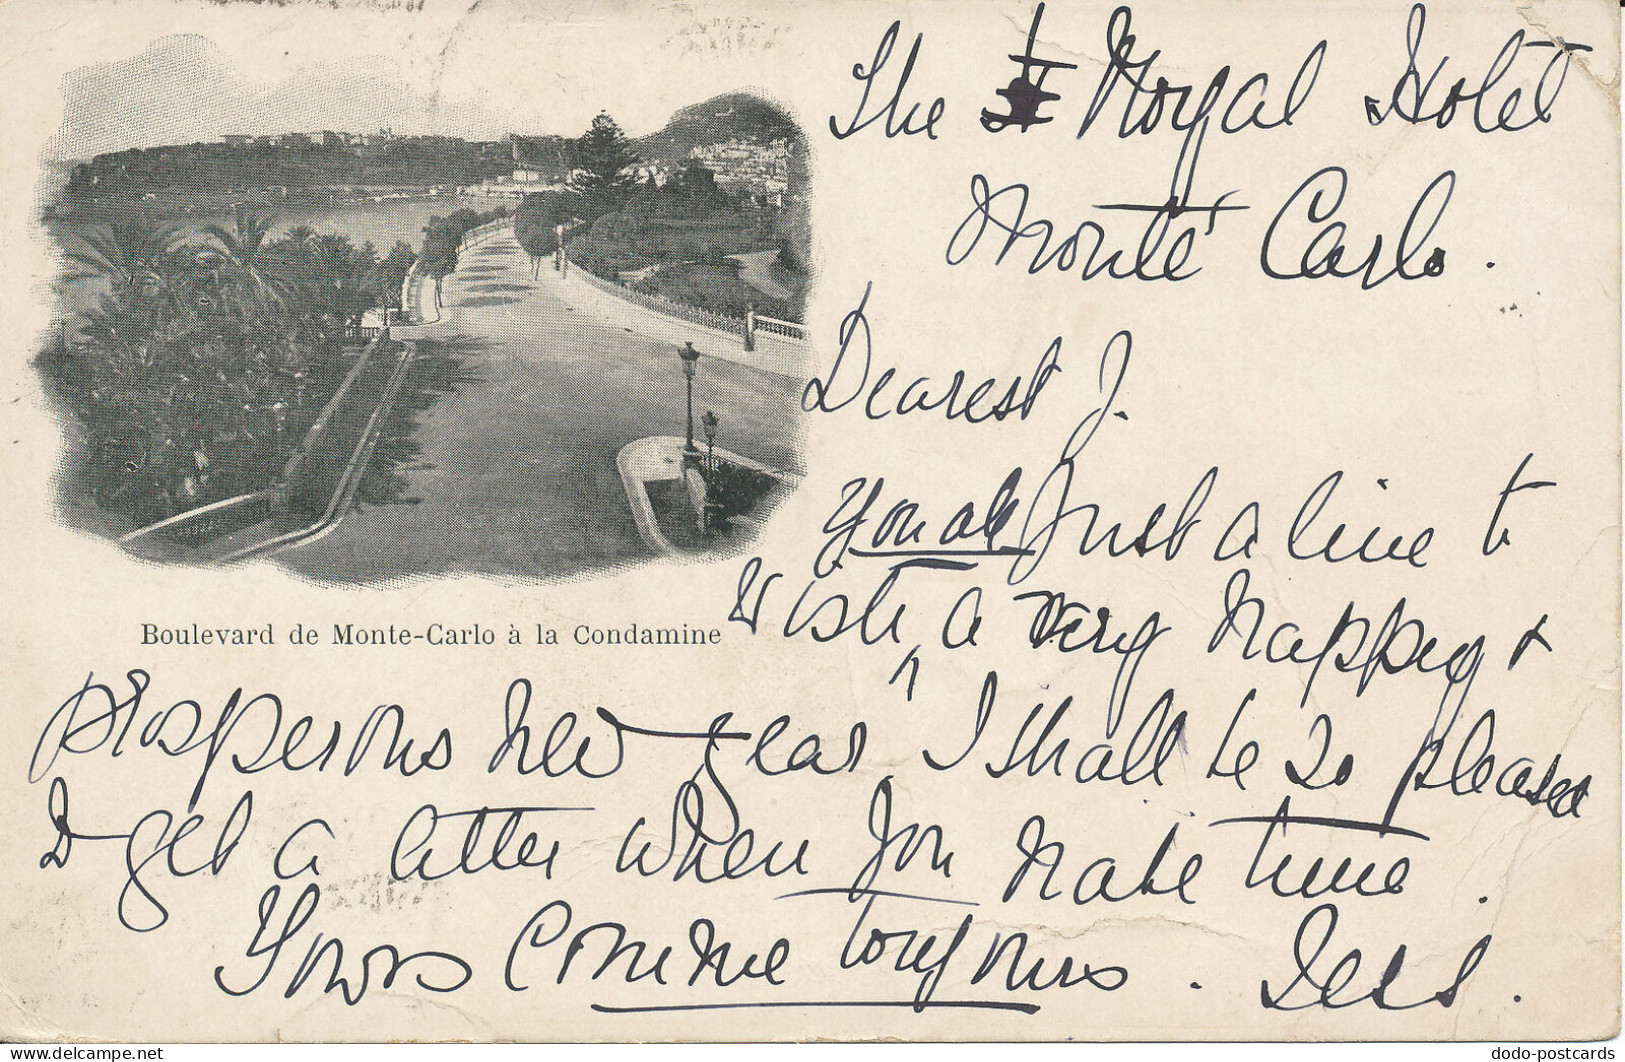 The Royal Hotel
Monté Carlo.
Dearest J.
Just a line to
you all
wish, a very happy &
Boulevard de Monte-Carlo à la Condamine
prosperous new year, I shall be so pleased
to get a letter when you have time.
Yours comme toujours. Jess.
dodo-postcards